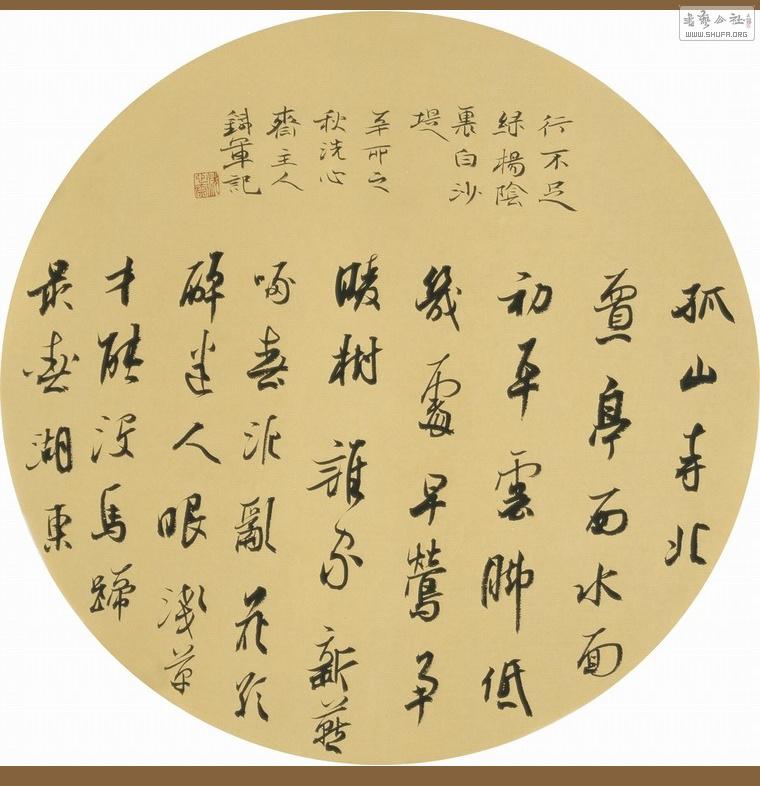 孤山寺北
賈亭西水面
初平雲腳低
幾處早鶯爭
暖樹誰家新燕
啄春泥亂花欲
醉迷人眼淺草
才能沒馬蹄
最愛湖東
行不足
綠楊陰
裏白沙
堤
辛卯之
秋洗心
齋主人
鑄軍記
書藝公社
WWW.SHUFA.ORG